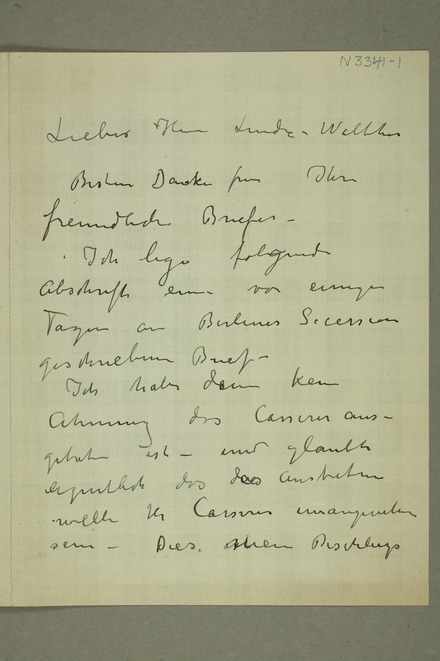 N 3341-1
Lieber Herr Linde-Walther
Besten Dank für Ihren
freundliche Briefe –
Ich lege folgende
Abschrift eine vor einigen
Tagen an Berliner Secession
geschriebenen Brief –
Ich habe denn kein
Ahnung das Cassirer aus-
gebeten ist – und glaubte
eigentlich das das austreten
wollte Hr Cassirer unangenehm
sein – Dies. mein Beschluss